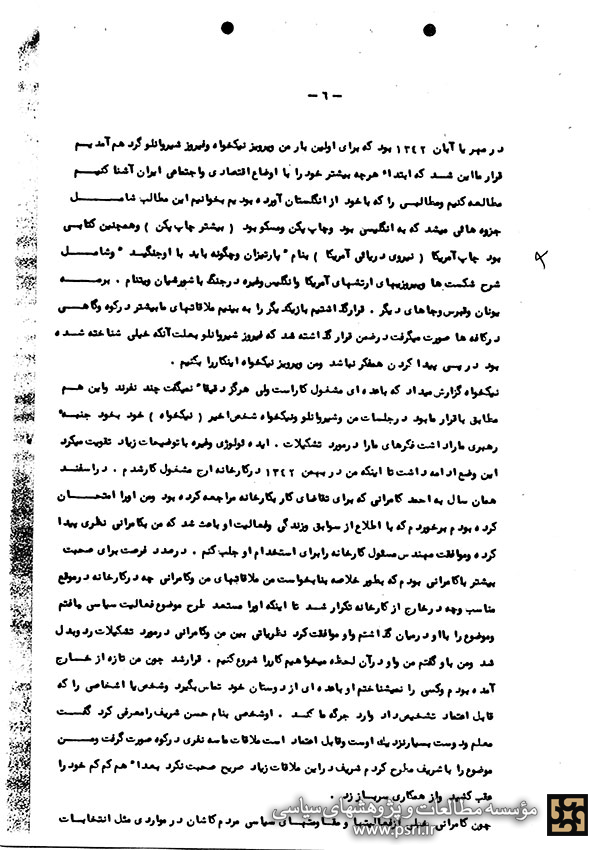 - ٦ -
در مهر یا آبان ١٣٤٢ بود که برای اولین بار من وپرویز نیکخواه وفیروز شیروانلو گرد هم آمدیم
قرار ما این شد که ابتدا" هرچه بیشتر خود را با اوضاع اقتصادی واجتماعی ایران آشنا کنیم
مطالعه کنیم ومطالبی را که با خود از انگستان آورده بودیم بخوانیم این مطالب شامل
جزوه هائی میشد که به انگلیسی بود وچاپ پکن ومسکو بود ( بیشتر چاپ پکن ) وهمچنین کتابی
بود چاپ آمریکا ( نیروی دریائی آمریکا ) بنام " پارتیزان وچگونه باید با او جنگید " وشامل
شرح شکست ها وپیروزیهای ارتشهای آمریکا وانگلیس وغیره در جنگ با شورشیان ویتنام . برمه
یونان وقبرس وجاهای دیگر . قرار گذاشتیم باز یکدیگر را به بینیم ملاقاتهای ما بیشتر در کوه وگاهی
در کافه ها صورت میگرفت در ضمن قرار گذاشته شد که فیروز شیروانلو بعلت آنکه خیلی شناخته شده
بود در پی پیدا کردن همفکر نباشد ومن وپرویز نیکخواه اینکار را بکنیم .
نیکخواه گزارش میداد که با عده ای مشغول کار است ولی هرگز دقیقا" نمیگفت چند نفرند واین هم
مطابق با قرار ما بود در جلسات من وشیروانلو ونیکخواه شخص اخیر ( نیکخواه ) خود بخود جنبه"
رهبری ما را داشت فکرهای ما را در مورد تشکیلات . ایده ئولوژی وغیره با توضیحات زیاد تقویت میکرد
این وضع ادامه داشت تا اینکه من در بهمن ١٣٤٢ در کارخانه ارج مشغول کار شدم . در اسفند
همان سال به احمد کامرانی که برای تقاضای کار بکارخانه مراجعه کرده بود ومن اورا امتحان
کرده بودم برخوردم که با اطلاع از سوابق وزندگی وفعالیت او باعث شد که من بکامرانی نظری پیدا
کرده وموافقت مهندس مسئول کارخانه را برای استخدام او جلب کنم . در صدد فرصت برای صحبت
بیشتر با کامرانی بودم که بطور خلاصه بنا بخواست من ملاقاتهای من وکامرانی چه در کارخانه در موقع
مناسب وچه در خارج از کارخانه تکرار شد تا اینکه اورا مستعد طرح موضوع فعالیت سیاسی یافتم
وموضوع را با او در میان گذاشتم واو موافقت کرد نظریاتی بین من وکامرانی در مورد تشکیلات رد وبدل
شد ومن باو گفتم من واو در آن لحظه میخواهیم کار را شروع کنیم . قرار شد چون من تازه از خارج
آمده بودم وکسی را نمیشناختم او با عده ای از دوستان خود تماس بگیرد وشخص یا اشخاصی را که
قابل اعتماد تشخیص داد وارد جرگه ما کند . او شخصی بنام حسن شریف را معرفی کرد گفت
معلم ودوست بسیار نزدیک اوست وقابل اعتماد است ملاقات ما سه نفری در کوه صورت گرفت ومن
موضوع را با شریف مطرح کردم شریف در این ملاقات زیاد صریح صحبت نکرد بعدا" هم کم کم خود را
عقب کشید واز همکاری سرباز زد .
چون کامرانی خیلی از فعالیتها و مقاومتهای سیاسی مردم کاشان در مواردی مثل انتخابات
مؤسسه مطالعات و پژوهشهای سیاسی
www.psri.ir